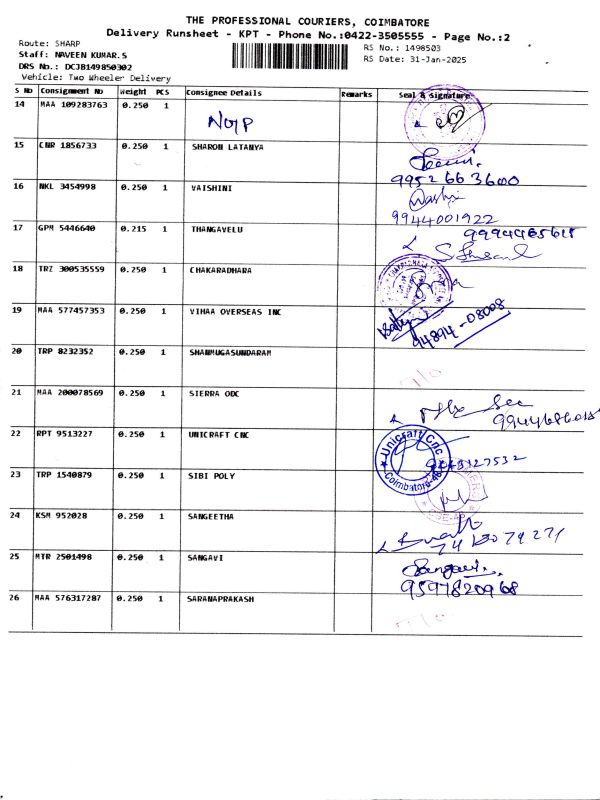 THE PROFESSIONAL COURIERS, COIMBATORE
Delivery Runsheet - KPT - Phone No.:0422-3505555 - Page No.:2
Route: SHARP
RS No.: 1498503
Staff: NAVEEN KUMAR.S
RS Date: 31-Jan-2025
DRS No.: DCJB149850302
Vehicle: Two Wheeler Delivery
S No Consignment No Weight PCS Consignee Details Remarks Seal & signature
14 MAA 109283763 0.250 1
15 CNR 1856733 0.250 1 SHARON LATANYA
9952663600
16 NKL 3454998 0.250 1 VAISHINI
9944001922
17 GPM 5446640 0.215 1 THANGAVELU
18 TRZ 300535559 0.250 1 CHAKARADHARA
19 MAA 577457353 0.250 1 VIHAA OVERSEAS INC
94894-08008
20 TRP 8232352 0.250 1 SHANMUGASUNDARAM
21 MAA 200078569 0.250 1 SIERRA ODC
22 RPT 9513227 0.250 1 UNICRAFT CNC
Unicraft Cnc
Coimbatore-46
23 TRP 1540879 0.250 1 SIBI POLY
24 KSM 952028 0.250 1 SANGEETHA
25 MTR 2501498 0.250 1 SANGAVI
Sangavi.
9597820968
26 MAA 576317287 0.250 1 SARANAPRAKASH